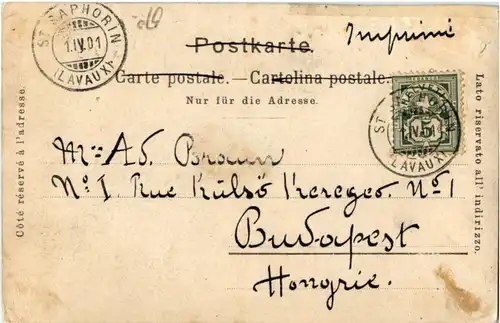 ST SAPHORIN
1.IV.01
(LAVAUX)
Postkarte.
Imprimé
Carte postale. — Cartolina postale.
Nur für die Adresse.
Côté réservé à l'adresse.
Lato riservato all' indirizzo.
HELVETIA
5
ST SAPHORIN
IV.01
(LAVAUX)
Mme Ad. Braun
No I. Rue Külső Kerege No 1
Budapest
Hongrie.